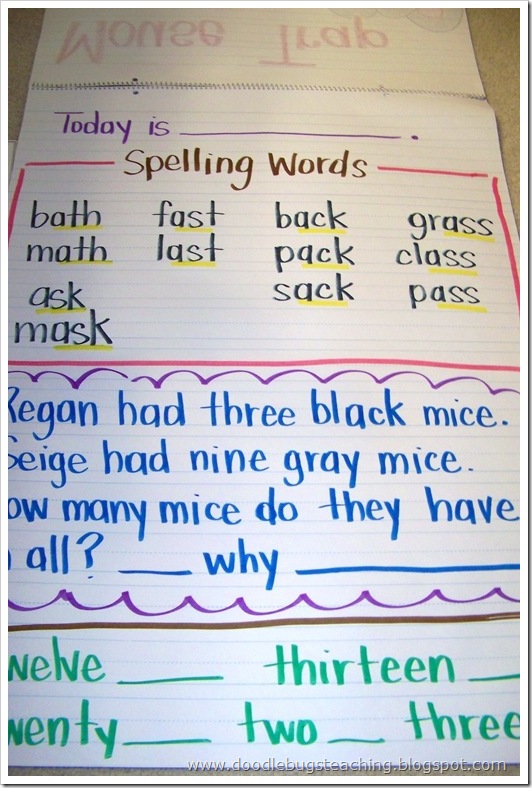 Mouse Trap
Today is ________.
Spelling Words
bath fast back grass
math last pack class
ask sack pass
mask
Regan had three black mice.
Seige had nine gray mice.
ow many mice do they have
all? ____ why ________
welve ____ thirteen ____
wenty ____ two ____ three
www.doodlebugsteaching.blogspot.com